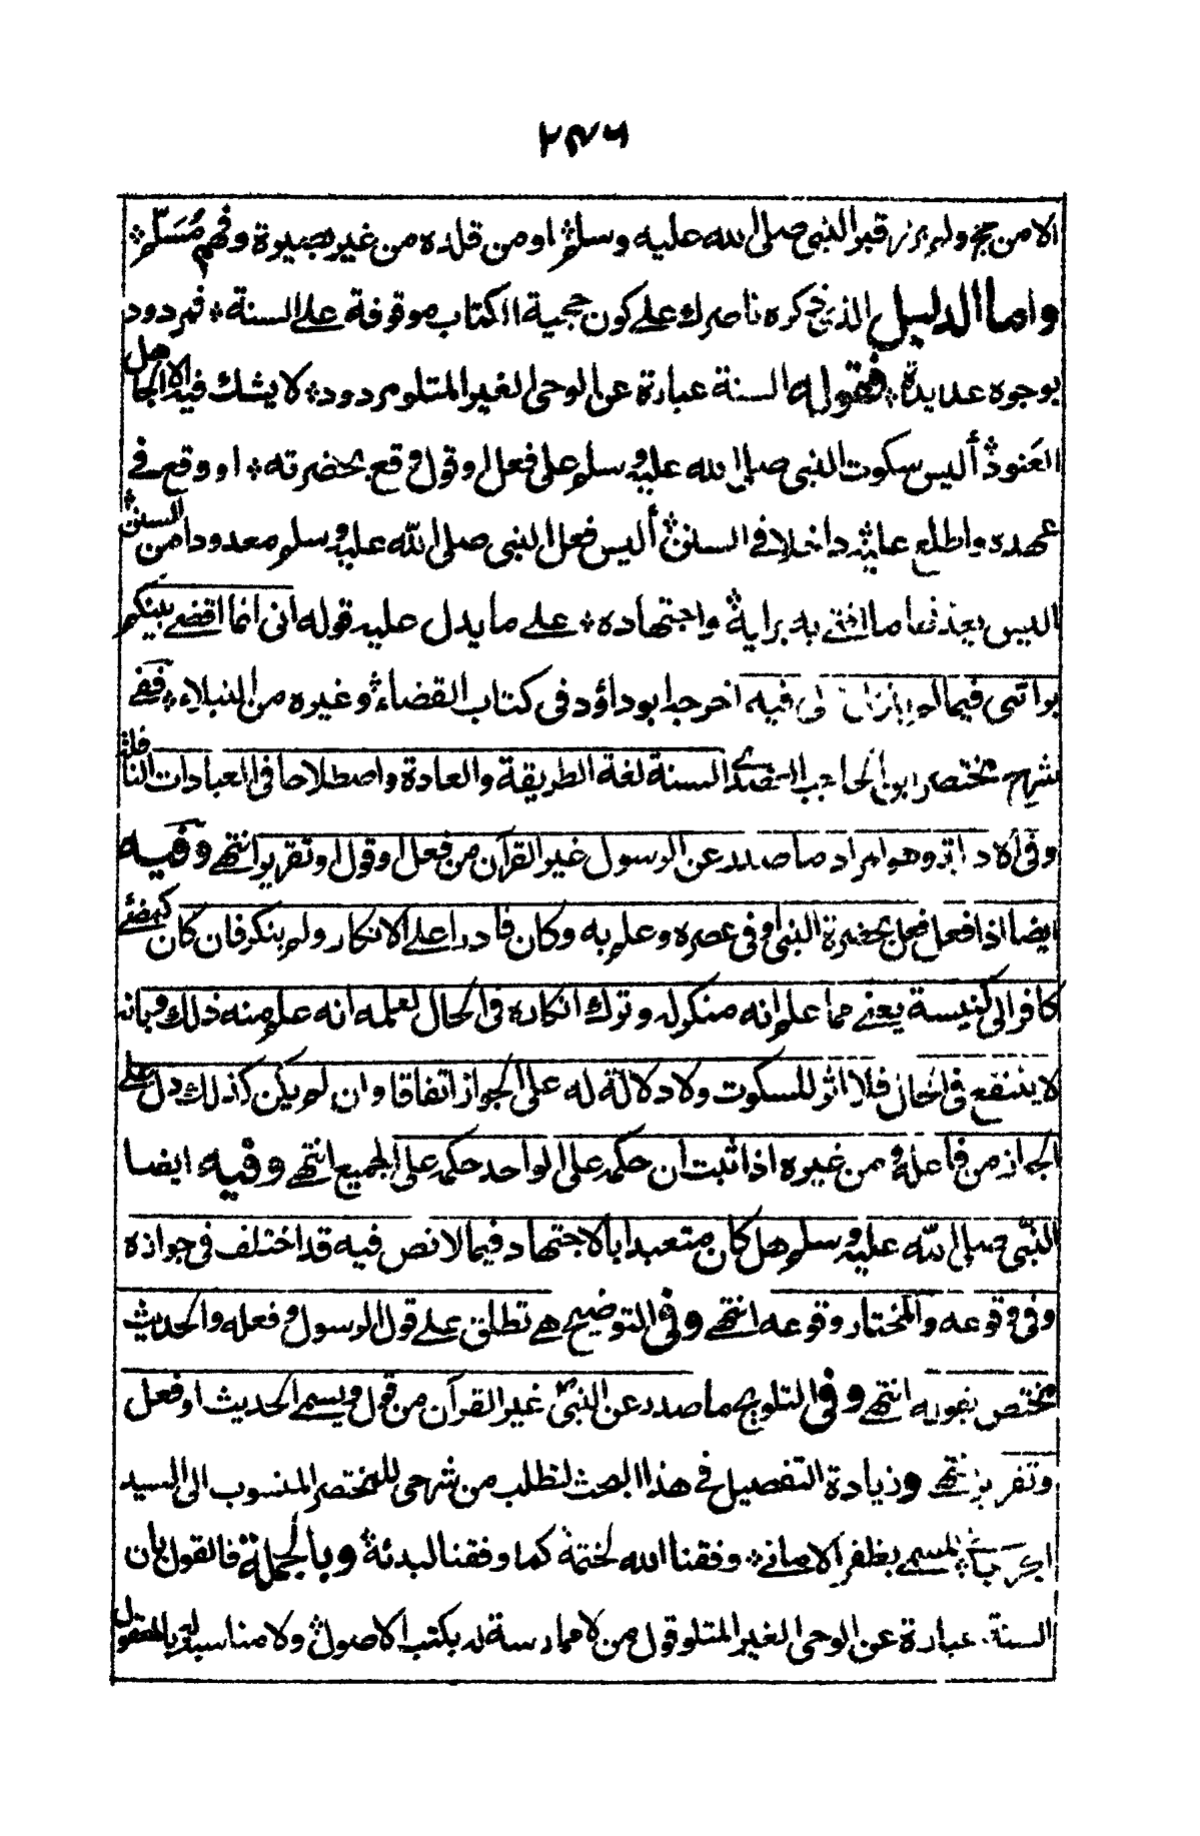 ٢٧٦
الا من حج ولم يزر قبر النبى صلى الله عليه وسلم او من قلده من غير بصيرة وفهم مُسَلّم
واما الدليل الذى ذكره ناصرك على كون حجية الكتاب موقوفة على السنة فمردود
بوجوه عديدة فقوله السنة عبارة عن الوحى الغير المتلو مردود لا يشك فيه الا الجاهل
العَنود أليس سكوت النبى صلى الله عليه وسلم على فعل او قول وقع بحضرته او وقع فى
عهده واطلع عليه داخلا فى السنن أليس فعل النبى صلى الله عليه وسلم معدودا من السنن
اليس يعد منها ما افتى به برايه واجتهاده على ما يدل عليه قوله انى انما اقضى بينكم
برائى فيما لم ينزل على فيه اخرجه ابو داؤد فى كتاب القضاء وغيره من النبلاء ففى
شرح مختصر ابن الحاجب العضدى السنة لغة الطريقة والعادة واصطلاحا فى العبادات النافلة
وفى الادلة وهو المراد ما صدر عن الرسول غير القرآن من فعل او قول او تقرير انتهى وفيه
ايضا اذا فعل فعل بحضرة النبى او فى عصره وعلم به وكان قادرا على الانكار ولم ينكر فان كان كمضى
كافر الى كنيسة يعنى مما علم انه منكر له وترك انكاره فى الحال لعلمه انه علم منه ذلك وبانه
لا ينتفع فى الحال فلا اثر للسكوت ولا دلالة له على الجواز اتفاقا وان لم يكن كذلك دل على
الجواز من فاعله ومن غيره اذا ثبت ان حكمه على الواحد حكمه على الجميع انتهى وفيه ايضا
النبى صلى الله عليه وسلم هل كان متعبدا بالاجتهاد فيما لا نص فيه قد اختلف فى جوازه
وفى وقوعه والمختار وقوعه انتهى وفى التوضيح هى تطلق على قول الرسول وفعله والحديث
مختص بقوله انتهى وفى التلويح ما صدر عن النبىؐ غير القرآن من قول ويسمى الحديث او فعل
وتقرير انتهى وزيادة التفصيل فى هذا البحث لتطلب من شرحى للمختصر المنسوب الى السيد
الجرجانى المسمى بظفر الامانى وفقنا الله لختمه كما وفقنا لبدئه وبالجملة فالقول بان
السنة عبارة عن الوحى الغير المتلو قول من لا ممارسة له بكتب الاصول ولا مناسبة له بالمعقول